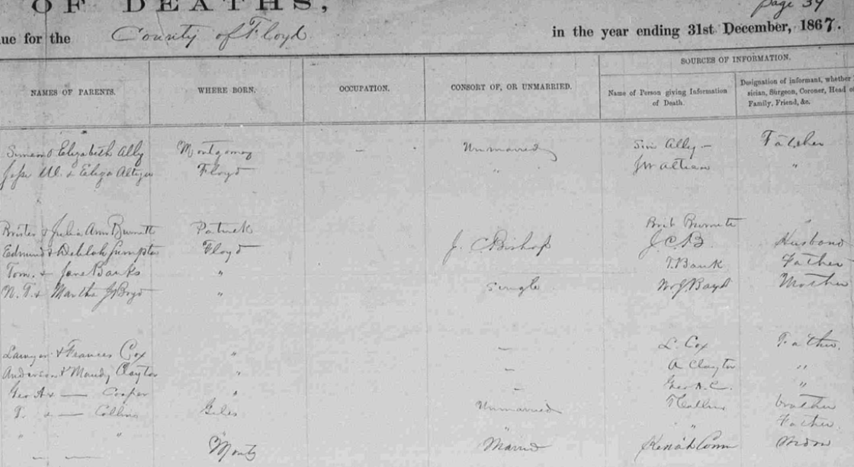 OF DEATHS,
page 34
ue for the County of Floyd in the year ending 31st December, 1867.
SOURCES OF INFORMATION.
NAMES OF PARENTS. WHERE BORN. OCCUPATION. CONSORT OF, OR UNMARRIED. Name of Person giving Information of Death. Designation of informant, whether
sician, Surgeon, Coroner, Head of
Family, Friend, &c.
Elizabeth Ally Montgomery - Unmarried Sim Ally - Father
Floyd " "
& Julia Ann Burnett Patrick Burnett
Edmund & Delilah Sumpter Floyd J. C Bishop J. C. B. Husband
Tom. & Jane Banks " T. Bank Father
N. T. & Martha J Boyd " Single M J Boyd Mother
& Frances Cox " - L Cox Father
Anderson & Mandy Clayton " - A Clayton "
Geo A & — Cooper " - Geo A. C. "
T. & — Collins Giles Unmarried T Collins brother
" " " " Father
— — Montg Married Conn